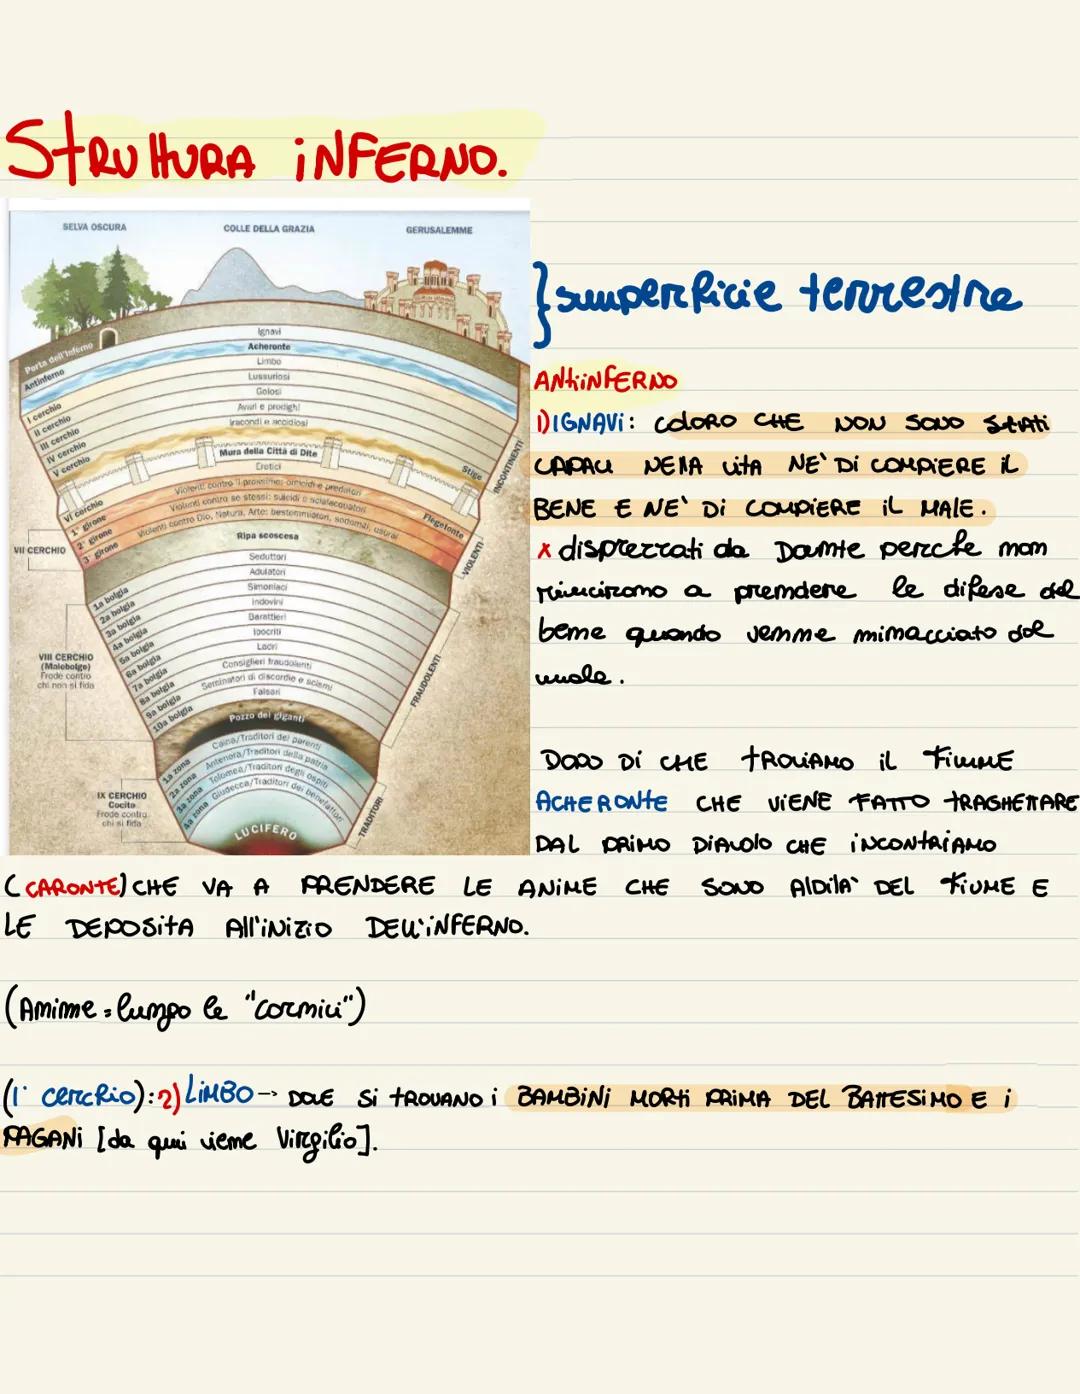 STRUTTURA INFERNO.
SELVA OSCURA
COLLE DELLA GRAZIA
GERUSALEMME
} superficie terrestre
Porta dell'Inferno
Antinferno
Ignavi
Acheronte
I cerchio
Limbo
II cerchio
Lussuriosi
III cerchio
Golosi
IV cerchio
Avari e prodighi
V cerchio
Iracondi e accidiosi
Stige
INCONTINENTI
Mura della Città di Dite
VI cerchio
Eretici
VII CERCHIO
1° girone
Violenti contro il prossimo: omicidi e predatori
2° girone
Violenti contro se stessi: suicidi e scialacquatori
3° girone
Violenti contro Dio, Natura, Arte: bestemmiatori, sodomiti, usurai
Flegetonte
VIOLENTI
Ripa scoscesa
VIII CERCHIO
(Malebolge)
Frode contro
chi non si fida
1a bolgia
Seduttori
2a bolgia
Adulatori
3a bolgia
Simoniaci
4a bolgia
Indovini
5a bolgia
Barattieri
6a bolgia
Ipocriti
7a bolgia
Ladri
8a bolgia
Consiglieri fraudolenti
9a bolgia
Seminatori di discordie e scismi
10a bolgia
Falsari
FRAUDOLENTI
Pozzo dei giganti
IX CERCHIO
Cocito
Frode contro
chi si fida
1a zona
Caina/Traditori dei parenti
2a zona
Antenora/Traditori della patria
3a zona
Tolomea/Traditori degli ospiti
4a zona
Giudecca/Traditori dei benefattori
TRADITORI
LUCIFERO
ANTINFERNO
1) IGNAVI: COLORO CHE NON SONO STATI
CAPACI NELLA VITA NE' DI COMPIERE IL
BENE E NE' DI COMPIERE IL MALE.
x disprezzati da Dante perche non
riuscirono a prendere le difese del
bene quando venne minacciato dal
male.
DOPO DI CHE TROVIAMO IL FIUME
ACHERONTE CHE VIENE FATTO TRAGHETTARE
DAL PRIMO DIAVOLO CHE INCONTRIAMO
(CARONTE) CHE VA A PRENDERE LE ANIME CHE SONO ALDILA' DEL FIUME E
LE DEPOSITA ALL'INIZIO DELL'INFERNO.
(Anime = lungo le "cornici")
(1° cerchio): 2) LIMBO → DOVE SI TROVANO I BAMBINI MORTI PRIMA DEL BATTESIMO E I
PAGANI [da qui viene Virgilio].